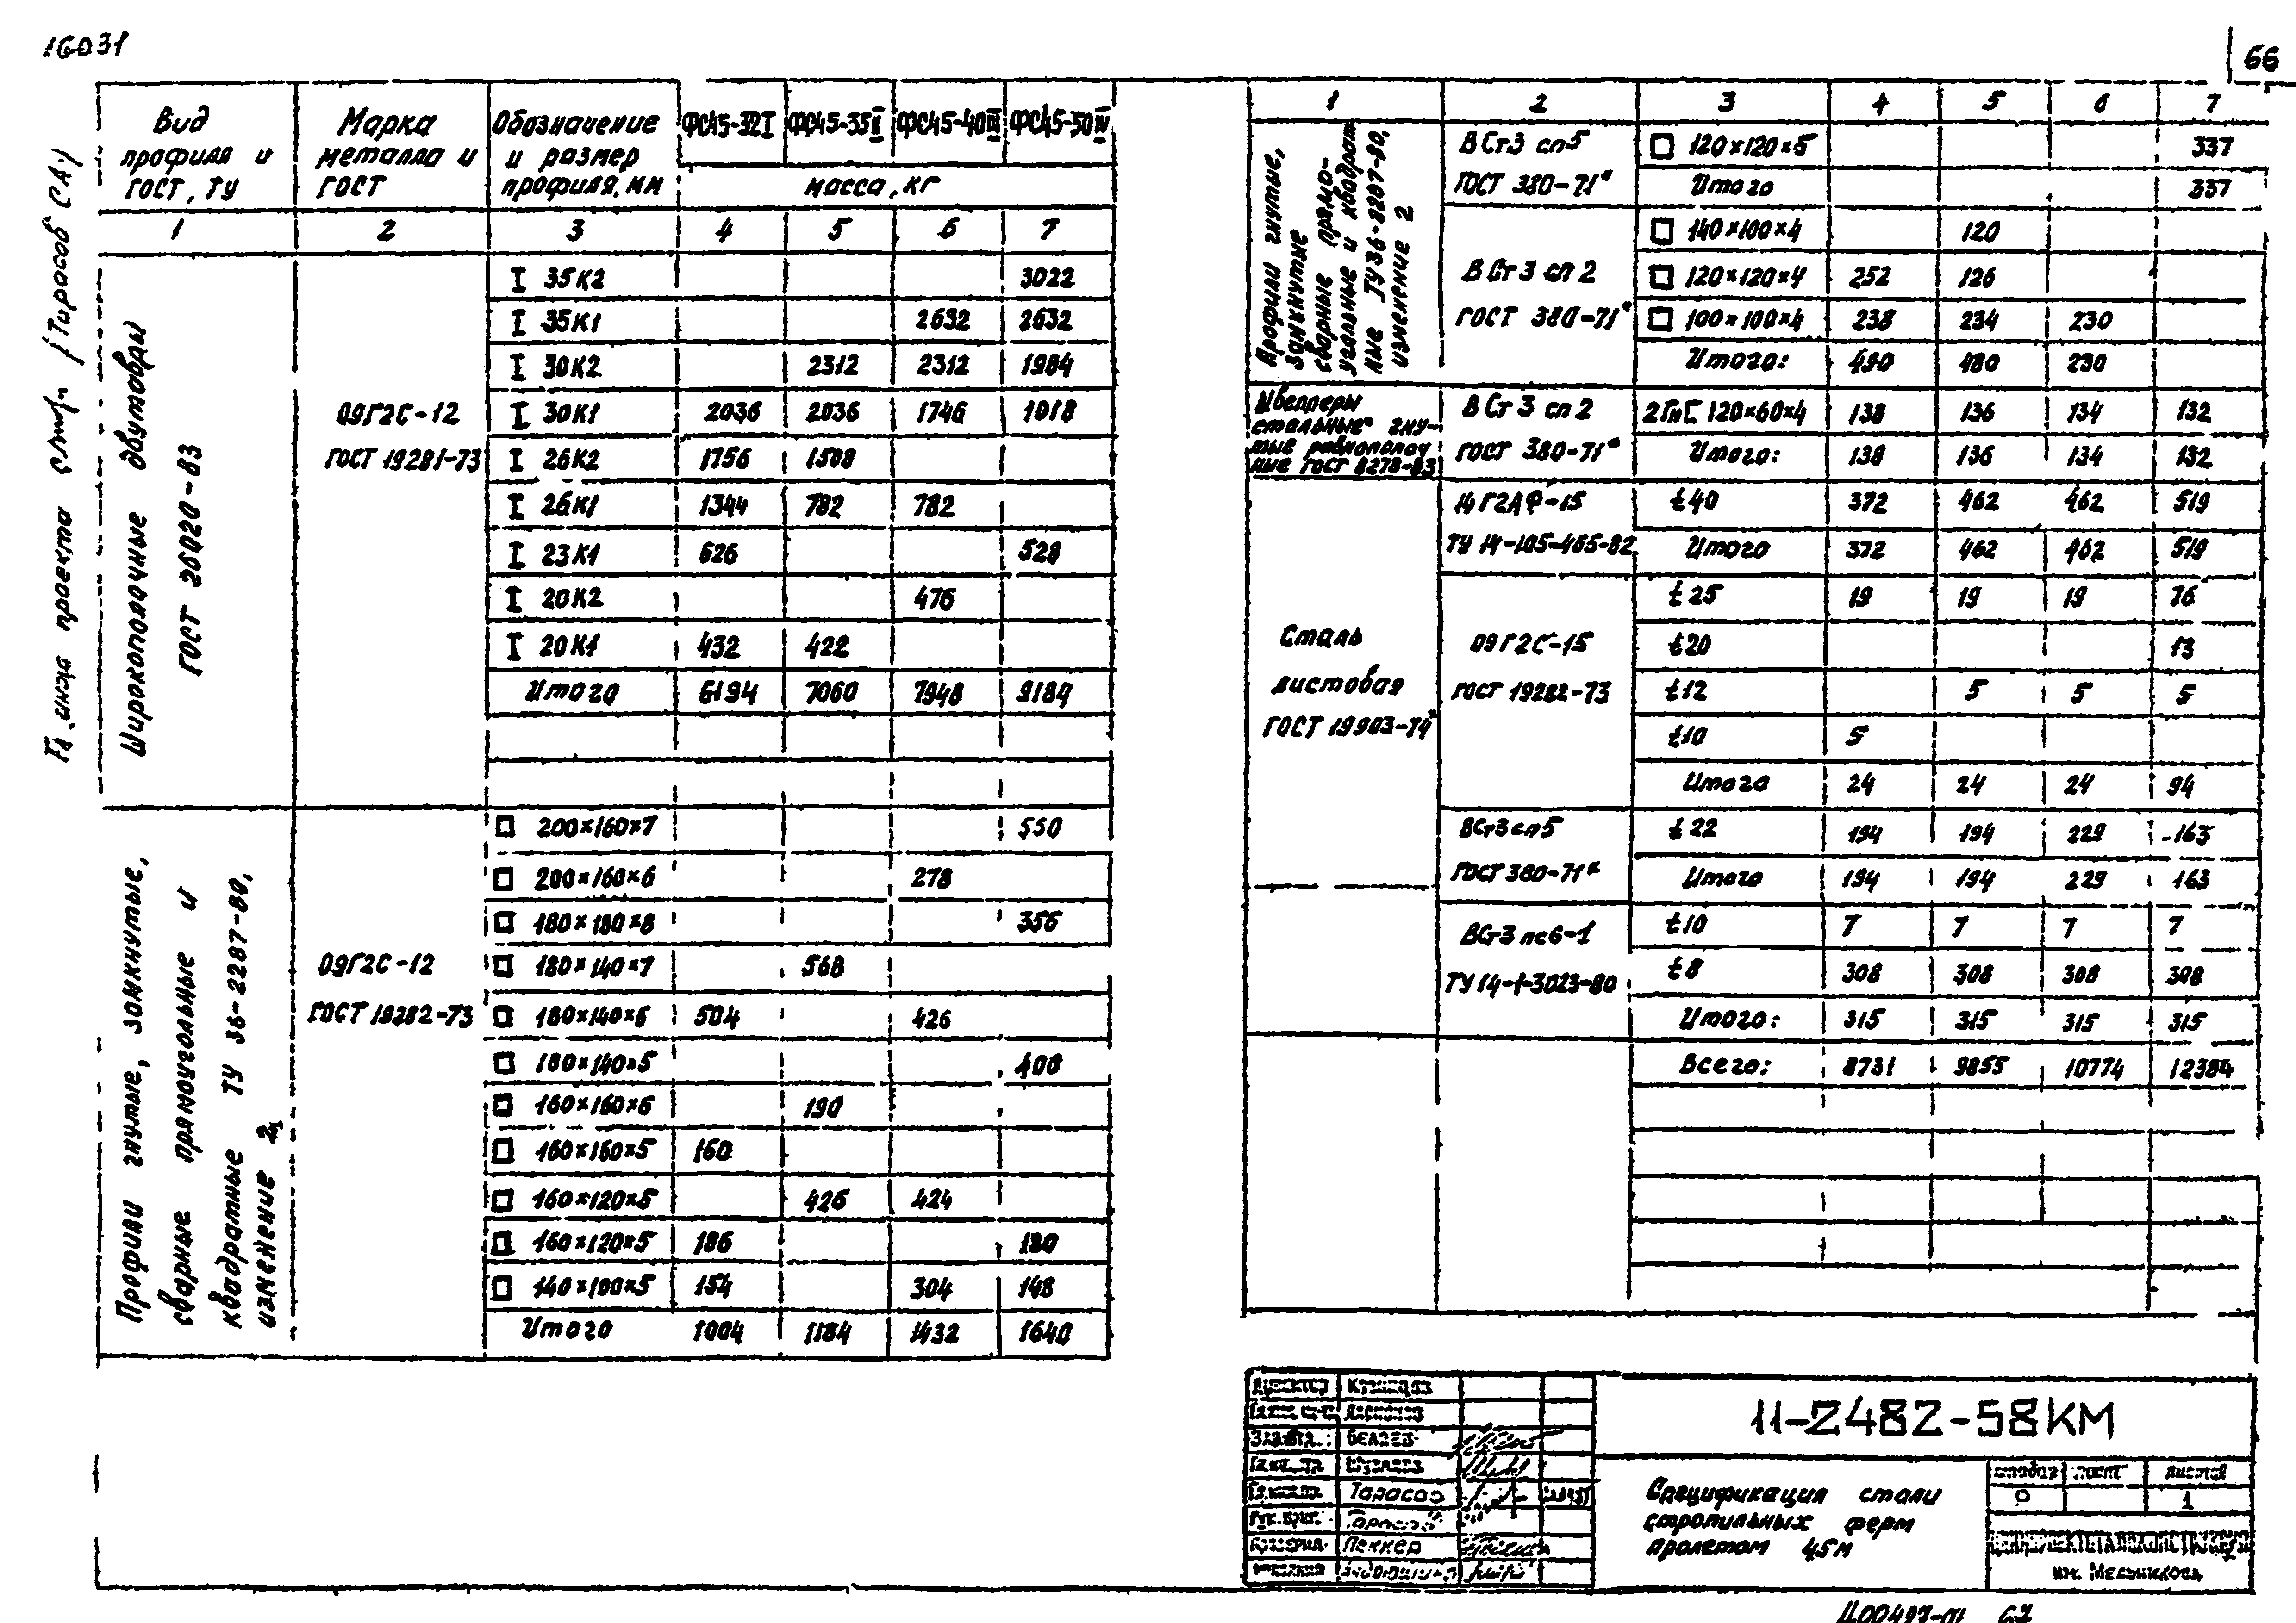 16031
66
Гл. инж проекта /Тарасов (А/
Вид профиля и ГОСТ, ТУ | Марка металла и ГОСТ | Обозначение и размер профиля, мм | ФС45-32I | ФС45-35II | ФС45-40III | ФС45-50IV
масса, кг
1 | 2 | 3 | 4 | 5 | 6 | 7
Широкополочные двутавры
ГОСТ 26020-83
09Г2С-12
ГОСТ 19281-73
I 35К2 | | | | 3022
I 35К1 | | | 2632 | 2632
I 30К2 | | 2312 | 2312 | 1984
I 30К1 | 2036 | 2036 | 1746 | 1018
I 26К2 | 1756 | 1508
I 26К1 | 1344 | 782 | 782
I 23К1 | 626 | | | 528
I 20К2 | | | 476
I 20К1 | 432 | 422
Итого | 6194 | 7060 | 7948 | 9184
Профили гнутые, замкнутые,
сварные прямоугольные и
квадратные ТУ 36-2287-80,
изменение 2
09Г2С-12
ГОСТ 19282-73
□ 200×160×7 | | | | 550
□ 200×160×6 | | | 278
□ 180×180×8 | | | | 356
□ 180×140×7 | | 568
□ 180×140×6 | 504 | | 426
□ 180×140×5 | | | | 400
□ 160×160×6 | | 190
□ 160×160×5 | 160
□ 160×120×5 | | 426 | 424
□ 160×120×5 | 186 | | | 180
□ 140×100×5 | 154 | | 304 | 148
Итого | 1004 | 1184 | 1432 | 1640
1 | 2 | 3 | 4 | 5 | 6 | 7
Профили гнутые,
замкнутые
сварные прямо-
угольные и квадрат
ные ТУ36-2287-80,
изменение 2
ВСт3 сп5
ГОСТ 380-71*
□ 120×120×5 | | | | 337
Итого | | | | 337
ВСт 3 сп 2
ГОСТ 380-71*
□ 140×100×4 | | 120
□ 120×120×4 | 252 | 126
□ 100×100×4 | 238 | 234 | 230
Итого: | 490 | 480 | 230
Швеллеры
стальные гну-
тые равнополоч
ные ГОСТ 8278-83
ВСт 3 сп 2
ГОСТ 380-71*
2Гн[ 120×60×4 | 138 | 136 | 134 | 132
Итого: | 138 | 136 | 134 | 132
Сталь
листовая
ГОСТ 19903-74
14Г2АФ-15
ТУ 14-105-465-82
t40 | 372 | 462 | 462 | 519
Итого | 372 | 462 | 462 | 519
09Г2С-15
ГОСТ 19282-73
t25 | 19 | 19 | 19 | 76
t20 | | | | 13
t12 | | 5 | 5 | 5
t10 | 5
Итого | 24 | 24 | 24 | 94
ВСт3сп5
ГОСТ 380-71*
t 22 | 194 | 194 | 229 | 163
Итого | 194 | 194 | 229 | 163
ВСт3 пс6-1
ТУ 14-1-3023-80
t10 | 7 | 7 | 7 | 7
t8 | 308 | 308 | 308 | 308
Итого: | 315 | 315 | 315 | 315
Всего: | 8731 | 9855 | 10774 | 12384
Директор Кузнецов
Беляев
Тарасов
Рук. бриг. Тарасов
Пеккер
11-2482-58КМ
Спецификация стали
стропильных ферм
пролетом 45м
стадия лист листов
Р 1
им. Мельникова
Ц00497-01 67